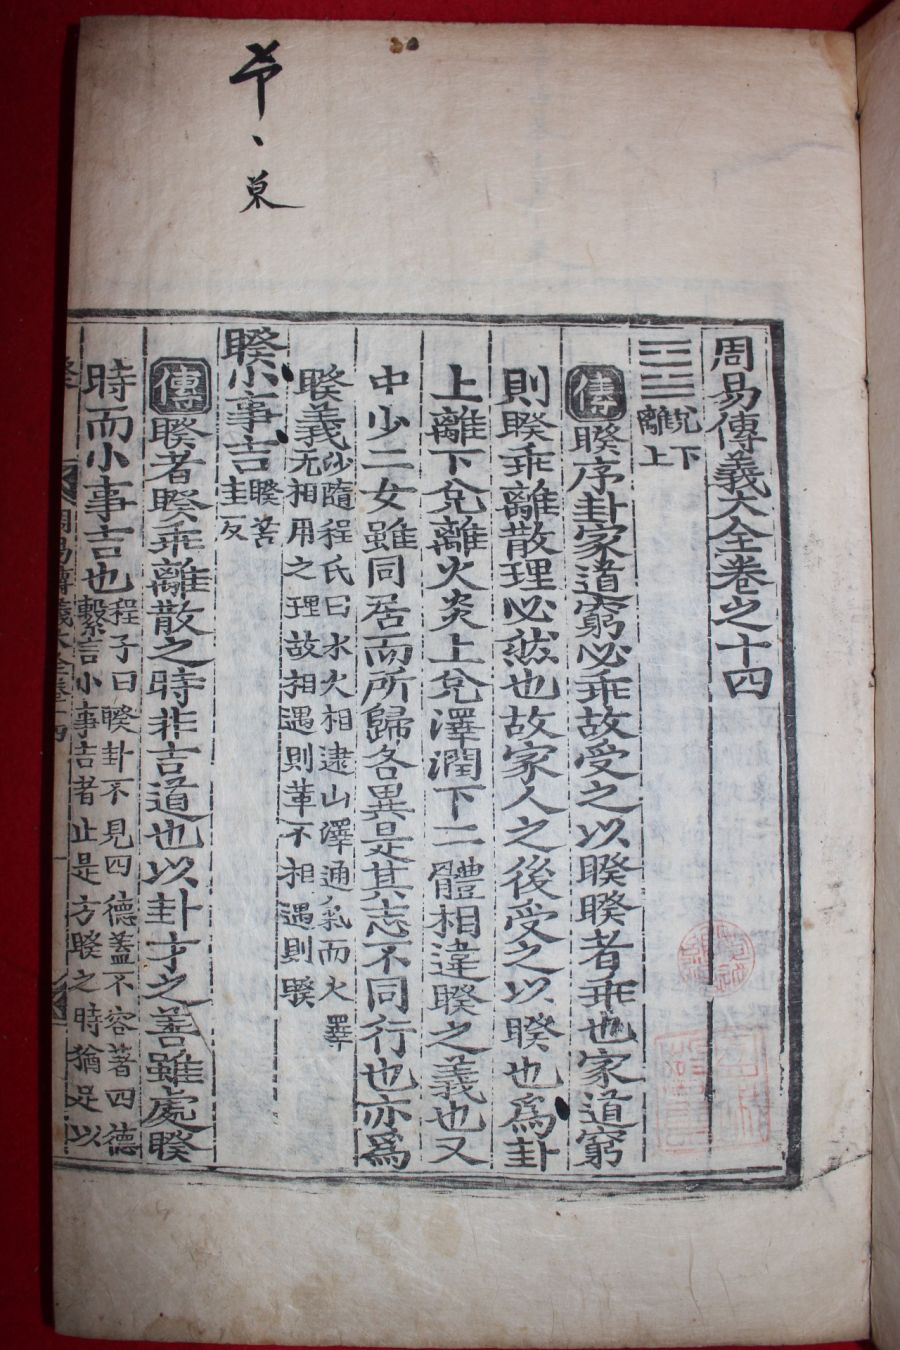 周易傳義大全卷之十四
兌下
離上
傳睽序卦家道窮必乖故受之以睽睽者乖也家道窮
則睽乖離散理必然也故家人之後受之以睽也爲卦
上離下兌離火炎上兌澤潤下二體相違睽之義也又
中少二女雖同居而所歸各異是其志不同行也亦爲
睽義
沙隨程氏曰水火相逮山澤通氣而火澤
无相用之理故相遇則革不相遇則睽
睽小事吉
睽苦
圭反
傳睽者睽乖離散之時非吉道也以卦才之善雖處睽
時而小事吉也
程子曰睽卦不見四德蓋不容著四德
繫言小事吉者止是方睽之時猶足以